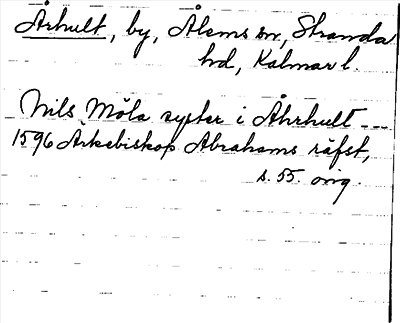 Århult, by, Ålems sn, Stranda
hd, Kalmar l.
Nils Möla syster i Åhrhult ---
1596 Ärkebiskop Abrahams räfst,
s. 55. orig.